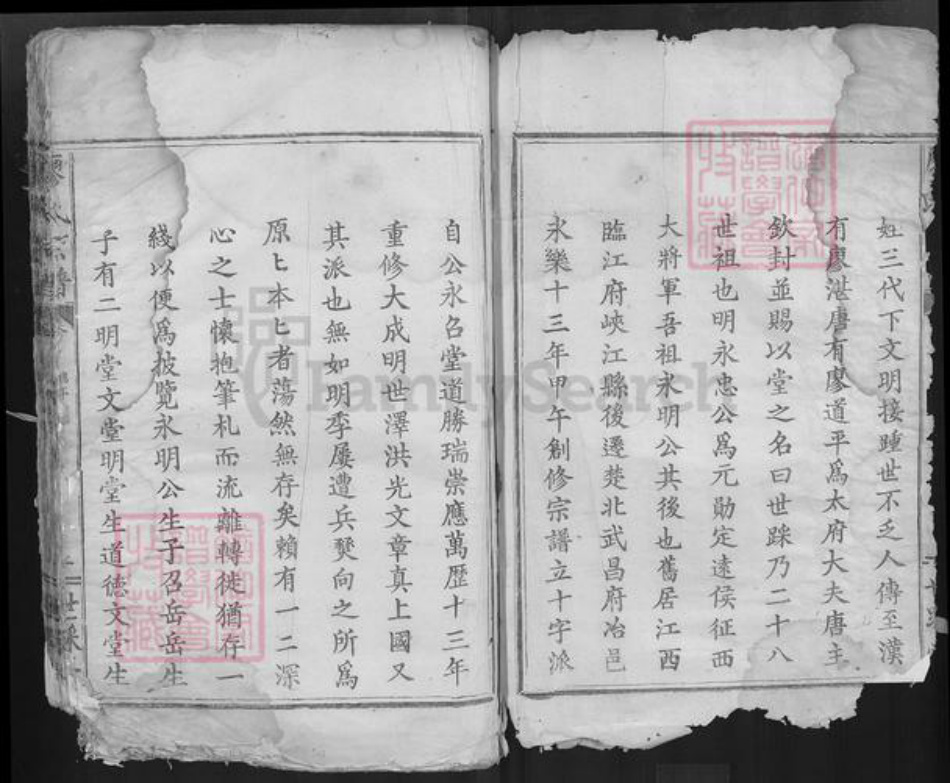 姓三代下文明接踵世不乏人傳至漢
有廖湛唐有廖道平爲太府大夫唐主
欽封並賜以堂之名曰世踩乃二十八
世祖也明永忠公爲元勛定遠侯征西
大將軍吾祖永明公其後也舊居江西
臨江府峽江縣後遷楚北武昌府冶邑
永樂十三年甲午創修宗譜立十字派
自公永召堂道勝瑞崇應萬歷十三年
重修大成明世澤洪光文章真上國又
其派也無如明季屢遭兵燹向之所爲
原匕本匕者蕩然無存矣賴有一二深
心之士懷抱筆札而流離轉徙猶存一
綫以便爲披覽永明公生子召岳岳生
子有二明堂文堂明堂生道德文堂生
廖氏宗譜
世踩
FamilySearch